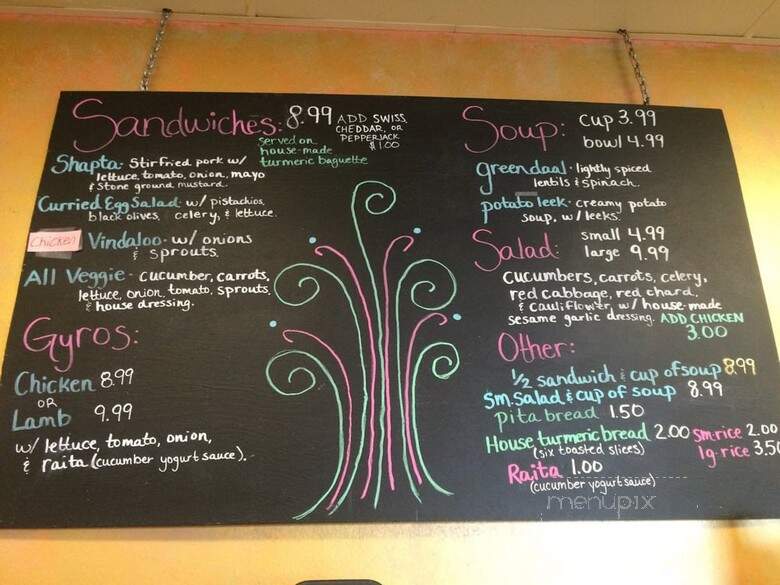 Sandwiches: 8.99 ADD SWISS,
CHEDDAR, OR
PEPPERJACK
$1.00
served on
house-made
turmeric baguette
Shapta- Stirfried pork w/
lettuce, tomato, onion, mayo
& stone ground mustard.
Curried Egg Salad- w/ pistachios,
black olives, celery, & lettuce.
Chicken Vindaloo- w/ onions
& sprouts.
All Veggie- cucumber, carrots,
lettuce, onion, tomato, sprouts,
& house dressing.
Gyros:
Chicken 8.99
OR
Lamb 9.99
w/ lettuce, tomato, onion,
& raita (cucumber yogurt sauce).
Soup: cup 3.99
bowl 4.99
greendaal- lightly spiced
lentils & spinach.
potato leek- creamy potato
soup, w/ leeks.
Salad: small 4.99
large 9.99
cucumbers, carrots, celery,
red cabbage, red chard,
& cauliflower, w/ house-made
sesame garlic dressing. ADD CHICKEN
3.00
Other:
1/2 sandwich & cup of soup 8.99
Sm. Salad & cup of soup 8.99
Pita bread 1.50
House turmeric bread 2.00 sm. rice 2.00
(six toasted slices) lg. rice 3.50
Raita 1.00
(cucumber yogurt sauce)
menupix